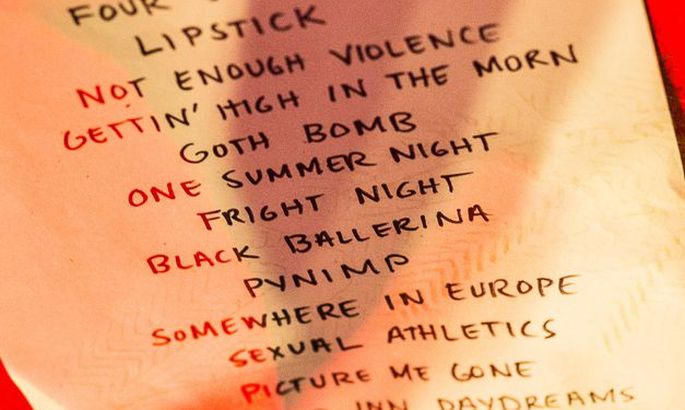 FOUR
LIPSTICK
NOT ENOUGH VIOLENCE
GETTIN' HIGH IN THE MORN
GOTH BOMB
ONE SUMMER NIGHT
FRIGHT NIGHT
BLACK BALLERINA
PYNIMP
SOMEWHERE IN EUROPE
SEXUAL ATHLETICS
PICTURE ME GONE
INN DAYDREAMS